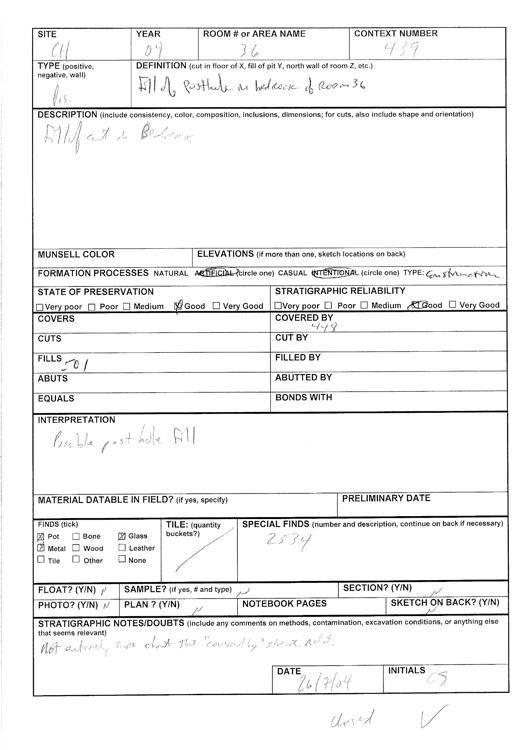 SITE YEAR ROOM # or AREA NAME CONTEXT NUMBER
CH 04 36 439
TYPE (positive, negative, wall) DEFINITION (cut in floor of X, fill of pit Y, north wall of room Z, etc.)
Pos. Fill of posthole in bedrock of Room 36
DESCRIPTION (include consistency, color, composition, inclusions, dimensions; for cuts, also include shape and orientation)
Fill of cut in Bedrock
MUNSELL COLOR ELEVATIONS (if more than one, sketch locations on back)
FORMATION PROCESSES NATURAL ARTIFICIAL (circle one) CASUAL INTENTIONAL (circle one) TYPE: Construction
STATE OF PRESERVATION STRATIGRAPHIC RELIABILITY
Very poor Poor Medium Good Very Good Very poor Poor Medium Good Very Good
COVERS COVERED BY
448
CUTS CUT BY
FILLS 501 FILLED BY
ABUTS ABUTTED BY
EQUALS BONDS WITH
INTERPRETATION
Possible post hole fill
MATERIAL DATABLE IN FIELD? (if yes, specify) PRELIMINARY DATE
FINDS (tick) TILE: (quantity buckets?) SPECIAL FINDS (number and description, continue on back if necessary)
Pot Bone Glass 2534
Metal Wood Leather
Tile Other None
FLOAT? (Y/N) N SAMPLE? (if yes, # and type) N SECTION? (Y/N) N
PHOTO? (Y/N) N PLAN ? (Y/N) N NOTEBOOK PAGES SKETCH ON BACK? (Y/N) N
STRATIGRAPHIC NOTES/DOUBTS (Include any comments on methods, contamination, excavation conditions, or anything else
that seems relevant)
Not entirely sure about this "covered by" strat. relat.
DATE INITIALS
26/7/04 CS